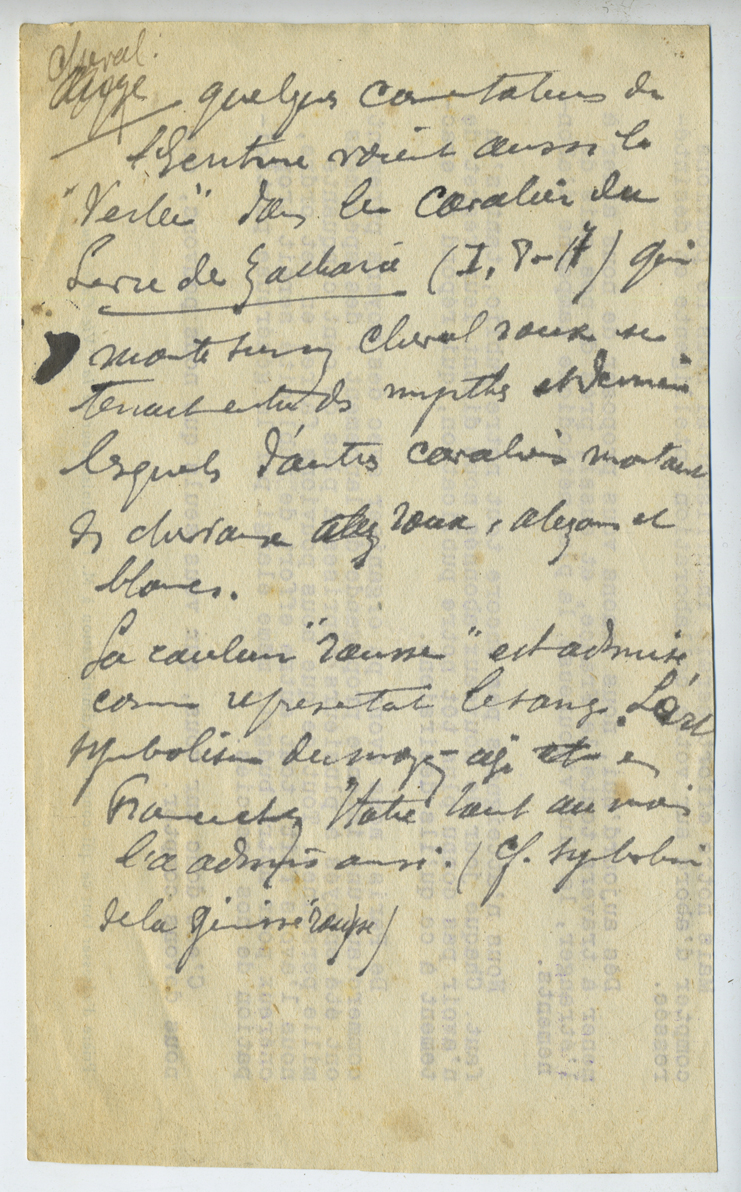 Cheval.
quelques commentateurs de
l'Ecriture voient aussi le
"Verbe" dans le cavalier du
Livre de Zacharie (I, 8-17) qui
monte sur un cheval roux se
tenant entre des myrthes et derrière
lesquels d'autres cavaliers montant
des chevaux roux, alezans et
blancs.
La couleur "rousse" est admise
comme représentant le sang. L'art
symbolique du moyen-age en
France et en Italie tout au moins
l'a admis aussi. (Cf. symbolisme
de la génisse rousse)